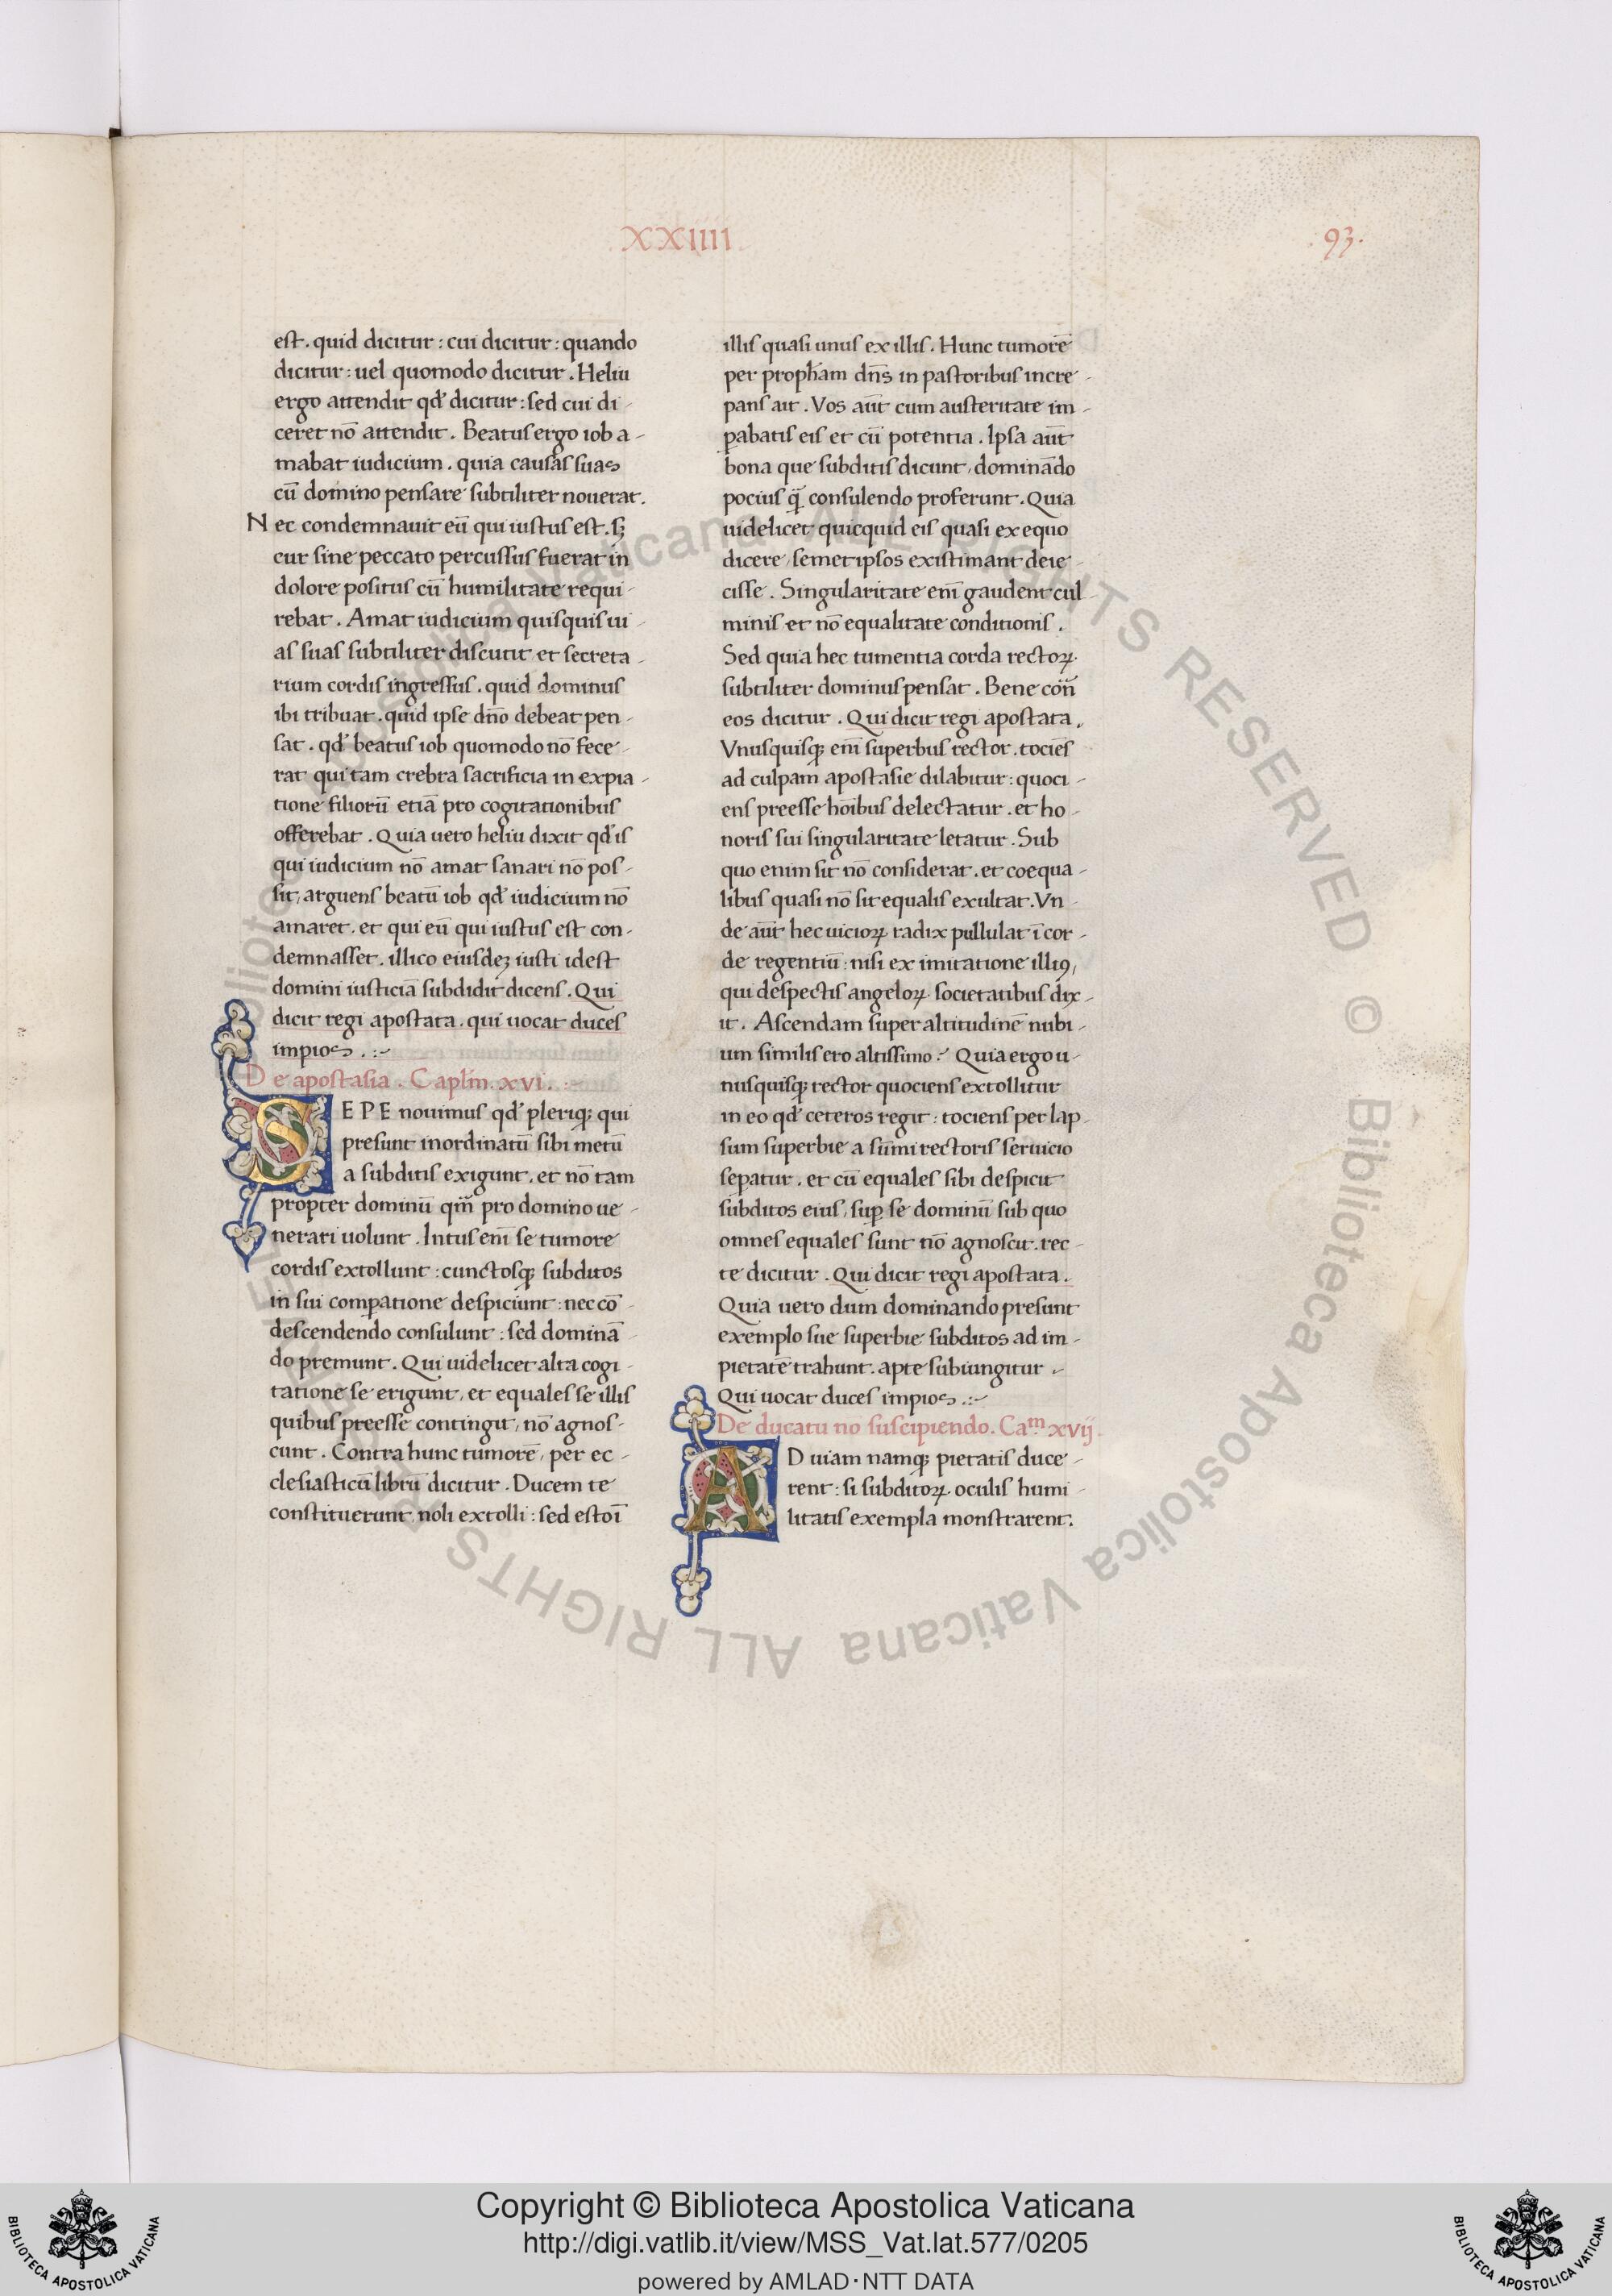 XXIIII
.93.
est. quid dicitur: cui dicitur: quando
dicitur: uel quomodo dicitur. Heliu
ergo attendit qd̛ dicitur: sed cui di-
ceret nō attendit. Beatus ergo iob a-
mabat iudicium. quia causas suas
cū domino pensare subtiliter nouerat.
Nec condemnauit eū qui iustus est. sꝫ
cur sine peccato percussus fuerat in
dolore positus cū humilitate requi-
rebat. Amat iudicium quisquis ui-
as suas subtiliter discutit et secreta-
rium cordis ingressus. quid dominus
ibi tribuat. quid ipse dño debeat pen-
sat. qd̛ beatus iob quomodo nō fece-
rat qui tam crebra sacrificia in expia-
tione filiorū etiā pro cogitationibus
offerebat. Quia uero heliu dixit qd̛ is
qui iudicium nō amat sanari nō pos-
sit, arguens beatū iob qd̛ iudicium nō
amaret, et qui eū qui iustus est con-
demnasset. illico eiusdeꝫ iusti idest
domini iusticiā subdidit dicens. Qui
dicit regi apostata. qui uocat duces
impios.:~
De apostasia. Caplm̄. xvi.:~
SEPE nouimus qd̛ pleriqꝫ qui
presunt inordinatū sibi metū
a subditis exigunt, et nō tam
propter dominū qm̄ pro domino ue-
nerari uolunt. Intus em̄ se tumore
cordis extollunt: cunctosqꝫ subditos
in sui comꝑatione despiciunt: nec cō-
descendendo consulunt: sed dominā-
do premunt. Qui uidelicet alta cogi-
tatione se erigunt, et equales se illis
quibus preesse contingit, nō agnos-
cunt. Contra hunc tumorē, per ec-
clesiasticū librū dicitur. Ducem te
constituerunt noli extolli: sed esto ī
illis quasi unus ex illis. Hunc tumorē
per propham̄ dñs in pastoribus incre-
pans ait. Vos aūt cum austeritate im-
ꝑabatis eis et cū potentia. Ipsa aūt
bona que subditis dicunt, dominādo
pocius q̄ consulendo proferunt. Quia
uidelicet quicquid eis quasi ex equo
dicere, semetipsos existimant deie-
cisse. Singularitate em̄ gaudent cul-
minis et nō equalitate conditionis.
Sed quia hec tumentia corda rectoꝝ
subtiliter dominus pensat. Bene con̄
eos dicitur. Qui dicit regi apostata.
Vnusquisqꝫ em̄ superbus rector. tociēs
ad culpam apostasie dilabitur: quoci-
ens preesse hoībus delectatur. et ho-
noris sui singularitate letatur. Sub
quo enim sit nō considerat. et coequa-
libus quasi nō sit equalis exultat. Vn-
de aūt hec uicioꝝ radix pullulat ī cor-
de regentiū: nisi ex imitatione illiꝰ,
qui despectis angeloꝝ societatibus dix-
it. Ascendam super altitudinē nubi-
um similis ero altissimo:~ Quia ergo u-
nusquisqꝫ rector quociens extollitur
in eo qd̛ ceteros regit: tociens per lap-
sum superbie a sūmi rectoris seruicio
seꝑatur. et cū equales sibi despicit
subditos eius, suꝑ se dominū sub quo
omnes equales sunt nō agnoscit. rec-
te dicitur. Qui dicit regi apostata.
Quia uero dum dominando presunt
exemplo sue superbie subditos ad im-
pietatē trahunt. apte subiungitur.
Qui uocat duces impios.:~
De ducatu no suscipiendo. Caᵐ. xvij.
AD uiam namqꝫ pietatis duce-
rent: si subditoꝝ oculis humi-
litatis exempla monstrarent.
Biblioteca Apostolica Vaticana ALL RIGHTS RESERVED © Biblioteca Apostolica Vaticana ALL RIGHTS RESERVED ©
Copyright © Biblioteca Apostolica Vaticana
http://digi.vatlib.it/view/MSS_Vat.lat.577/0205
powered by AMLAD·NTT DATA
BIBLIOTECA APOSTOLICA VATICANA
BIBLIOTECA APOSTOLICA VATICANA